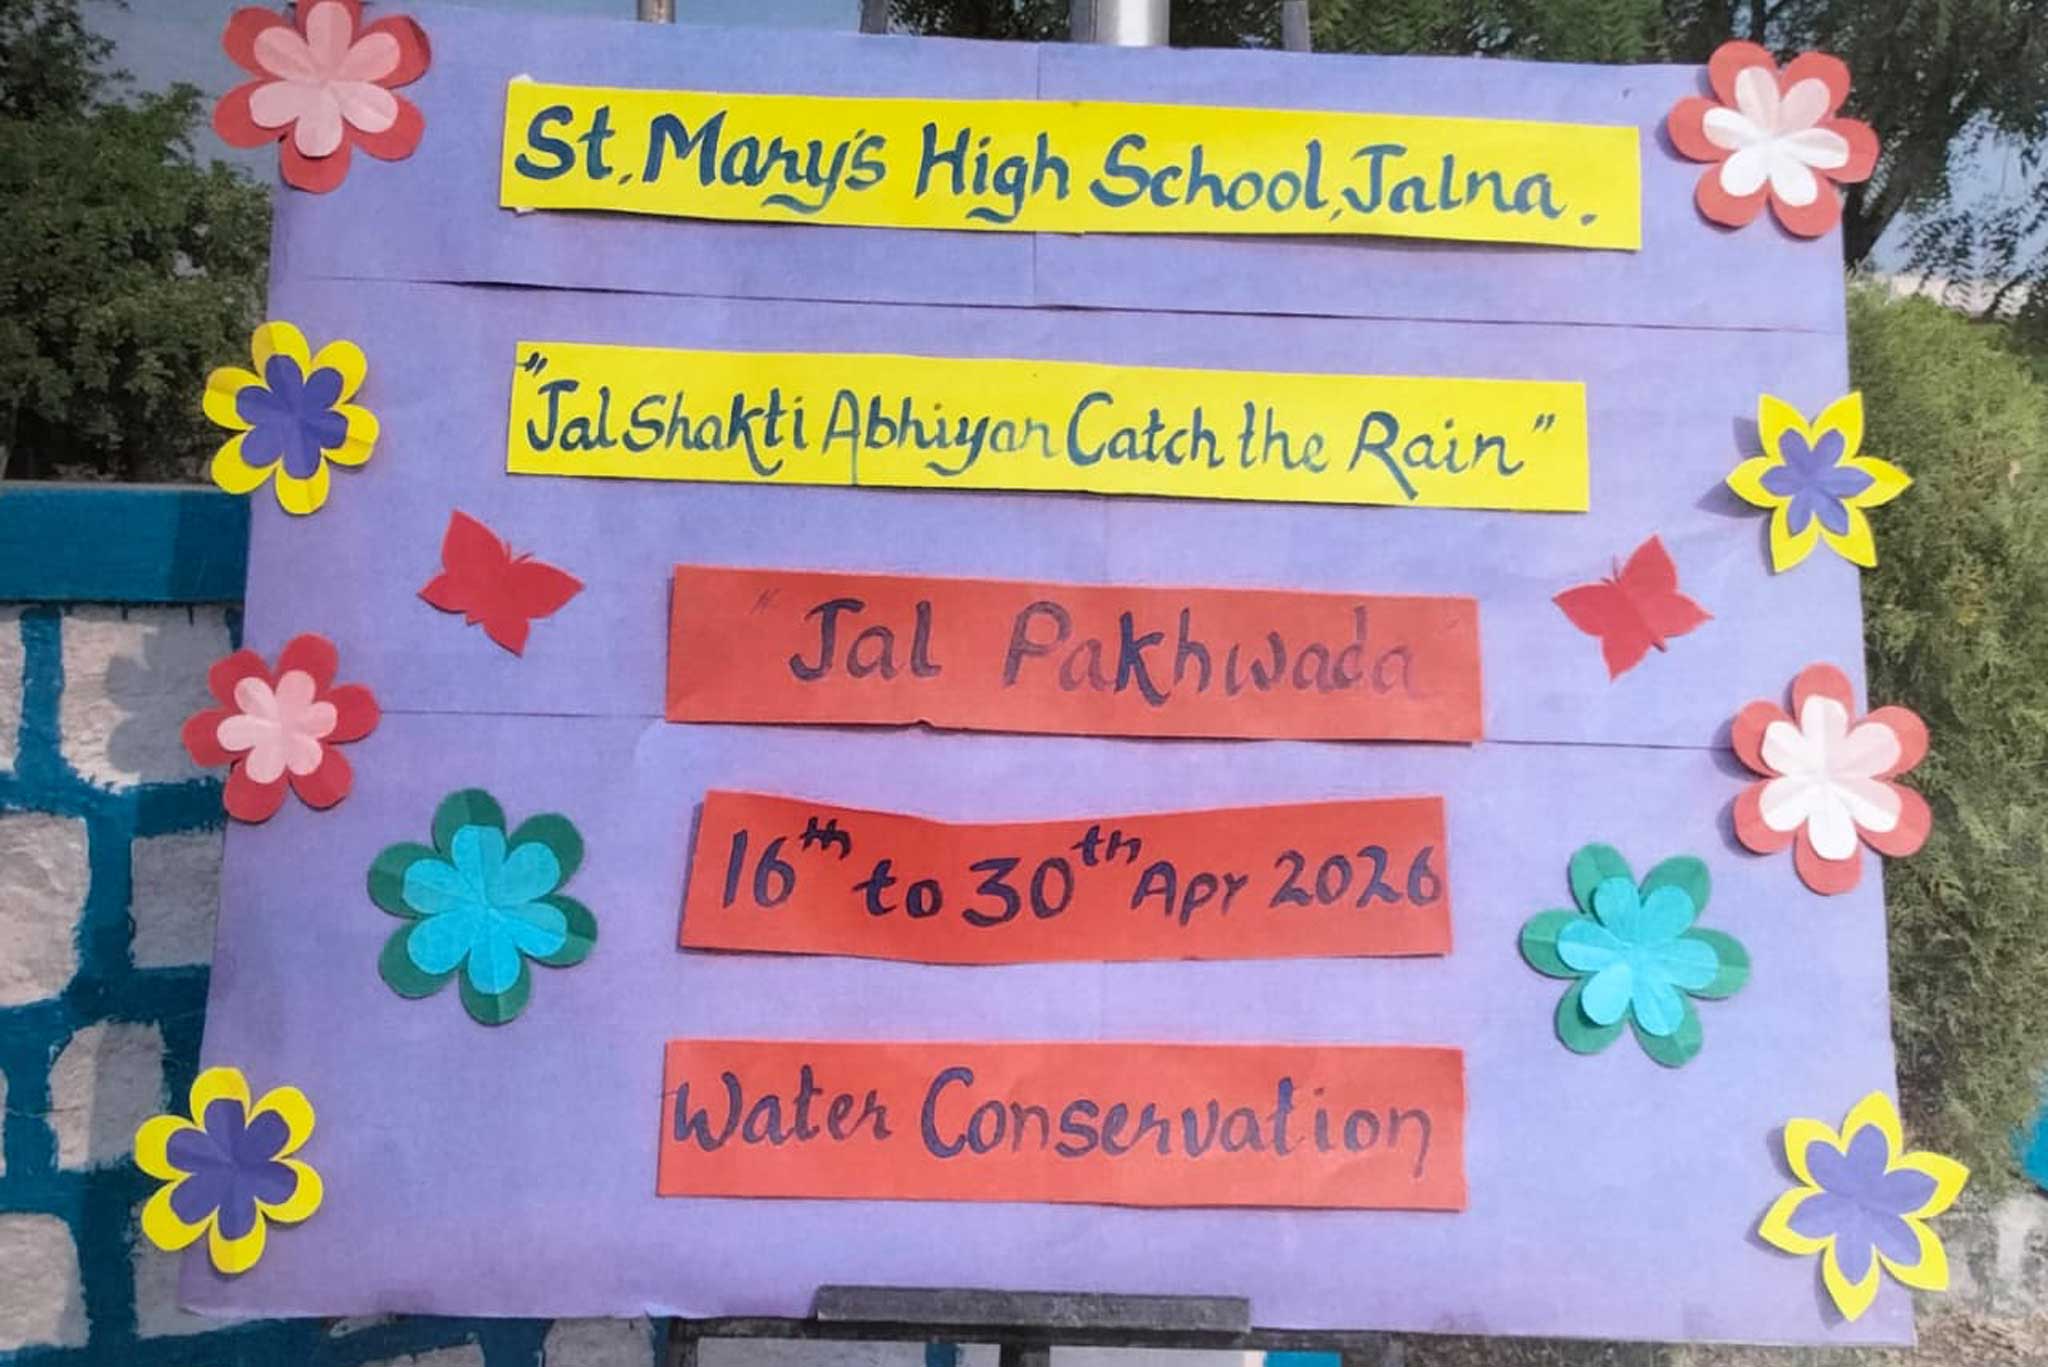 St. Mary's High School, Jalna.
"Jal Shakti Abhiyan Catch the Rain"
"Jal Pakhwada"
16th to 30th Apr 2026
Water Conservation